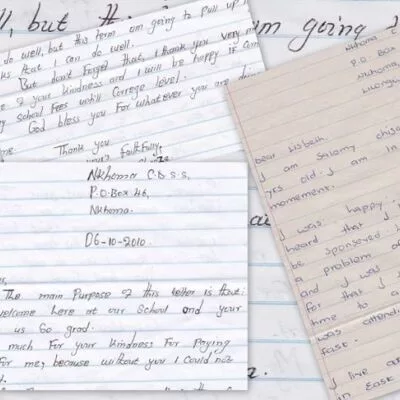 ll, but
am going t
do well, but this term am going to pull up
that I can do well.
But don't Forget that, I thank you very m
of your kindness and I will be happy if
school Fees untill Correge level.
God bless you For whatever you are
Thank you
Your's Faithfully,
Nkhoma C.D.S.S,
P.O.Box 46,
Nkhoma.
06-10-2010.
The main Purpose of this letter is that:
welcome here at our School and your
us So grad.
much For your kindness For Paying
For me, because without you I could not
Nkhoma C
P.O. Box
Nkhoma,
dear Lisbeth.
I am Salomy
yes old. I am in
momement.
I was happy
heard that I
be sponsered
a problem of
and I was
for that I
time to a
was attend
fast.
I live at
in East